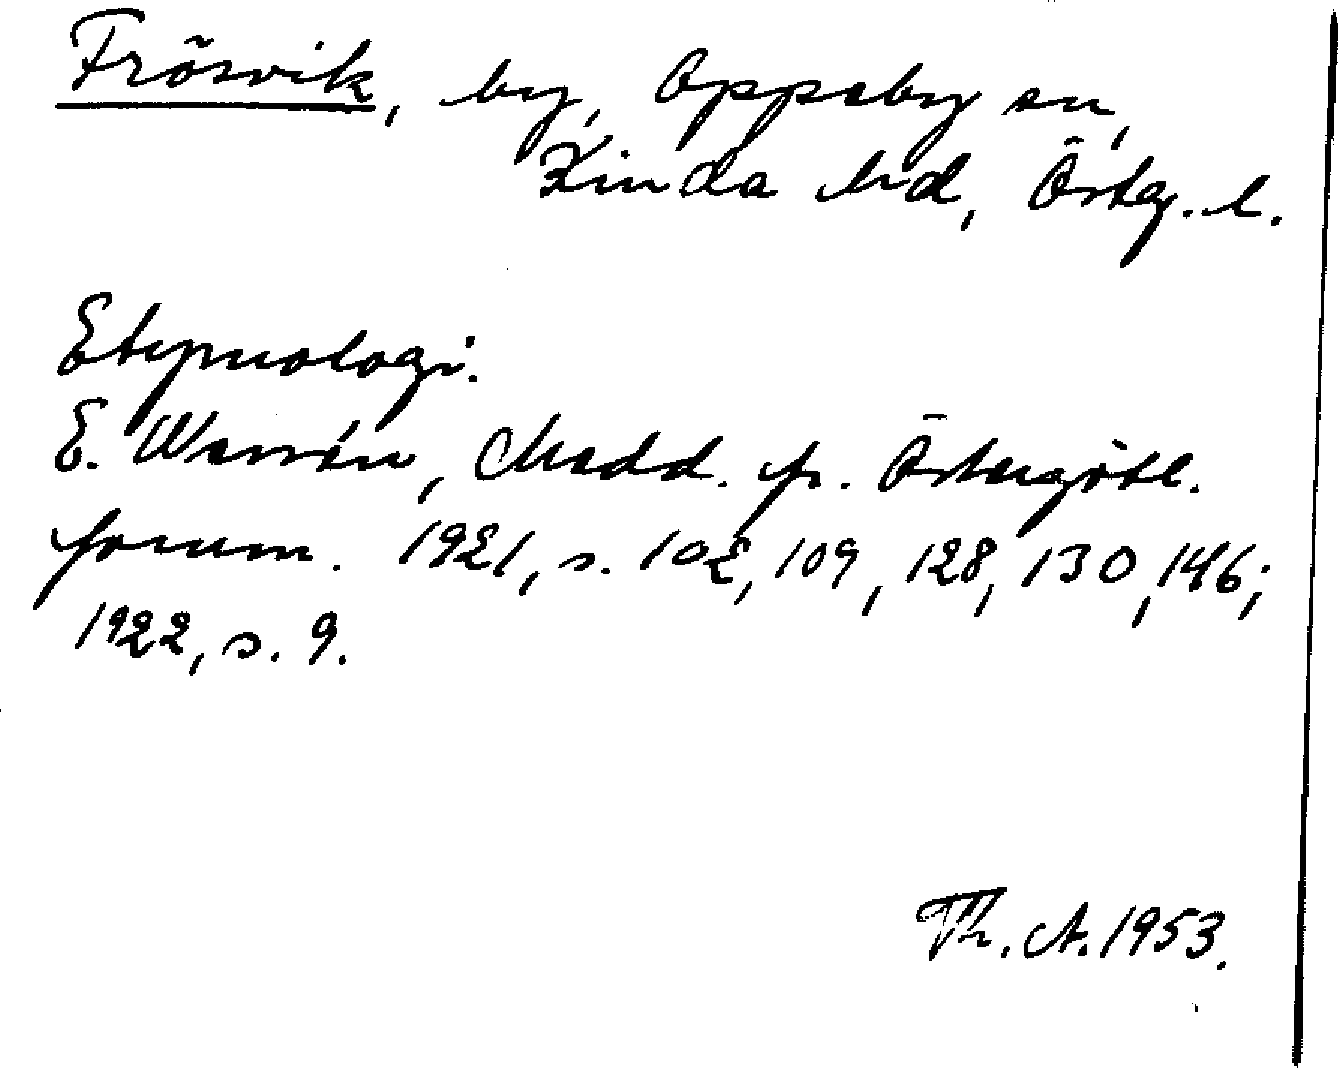 Frösvik, by, Oppeby sn,
Kinda hd, Östg. l.
Etymologi.
E. Wessén, Medd. fr. Östergötl.
fornm. 1921, s. 102, 109, 128, 130, 146;
1922, s. 9.
Th. A. 1953.